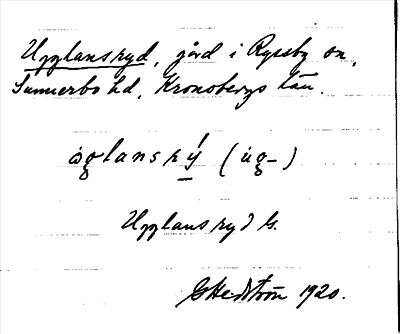 Upplansryd, gård i Ryssby sn,
Sunnerbo hd, Kronobergs län.
(ug-)
Upplansryd G.
GHedström 1920.